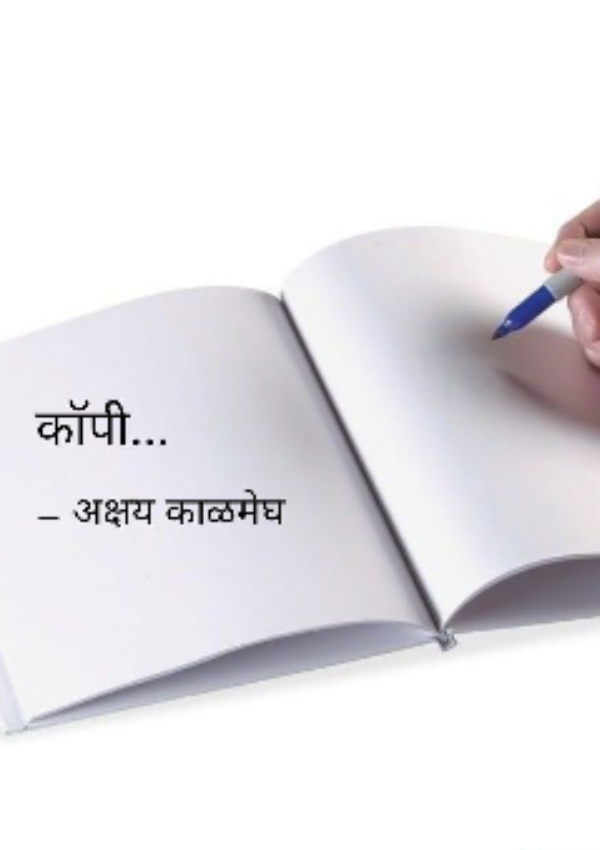 कॉपी...
– अक्षय काळमेघ